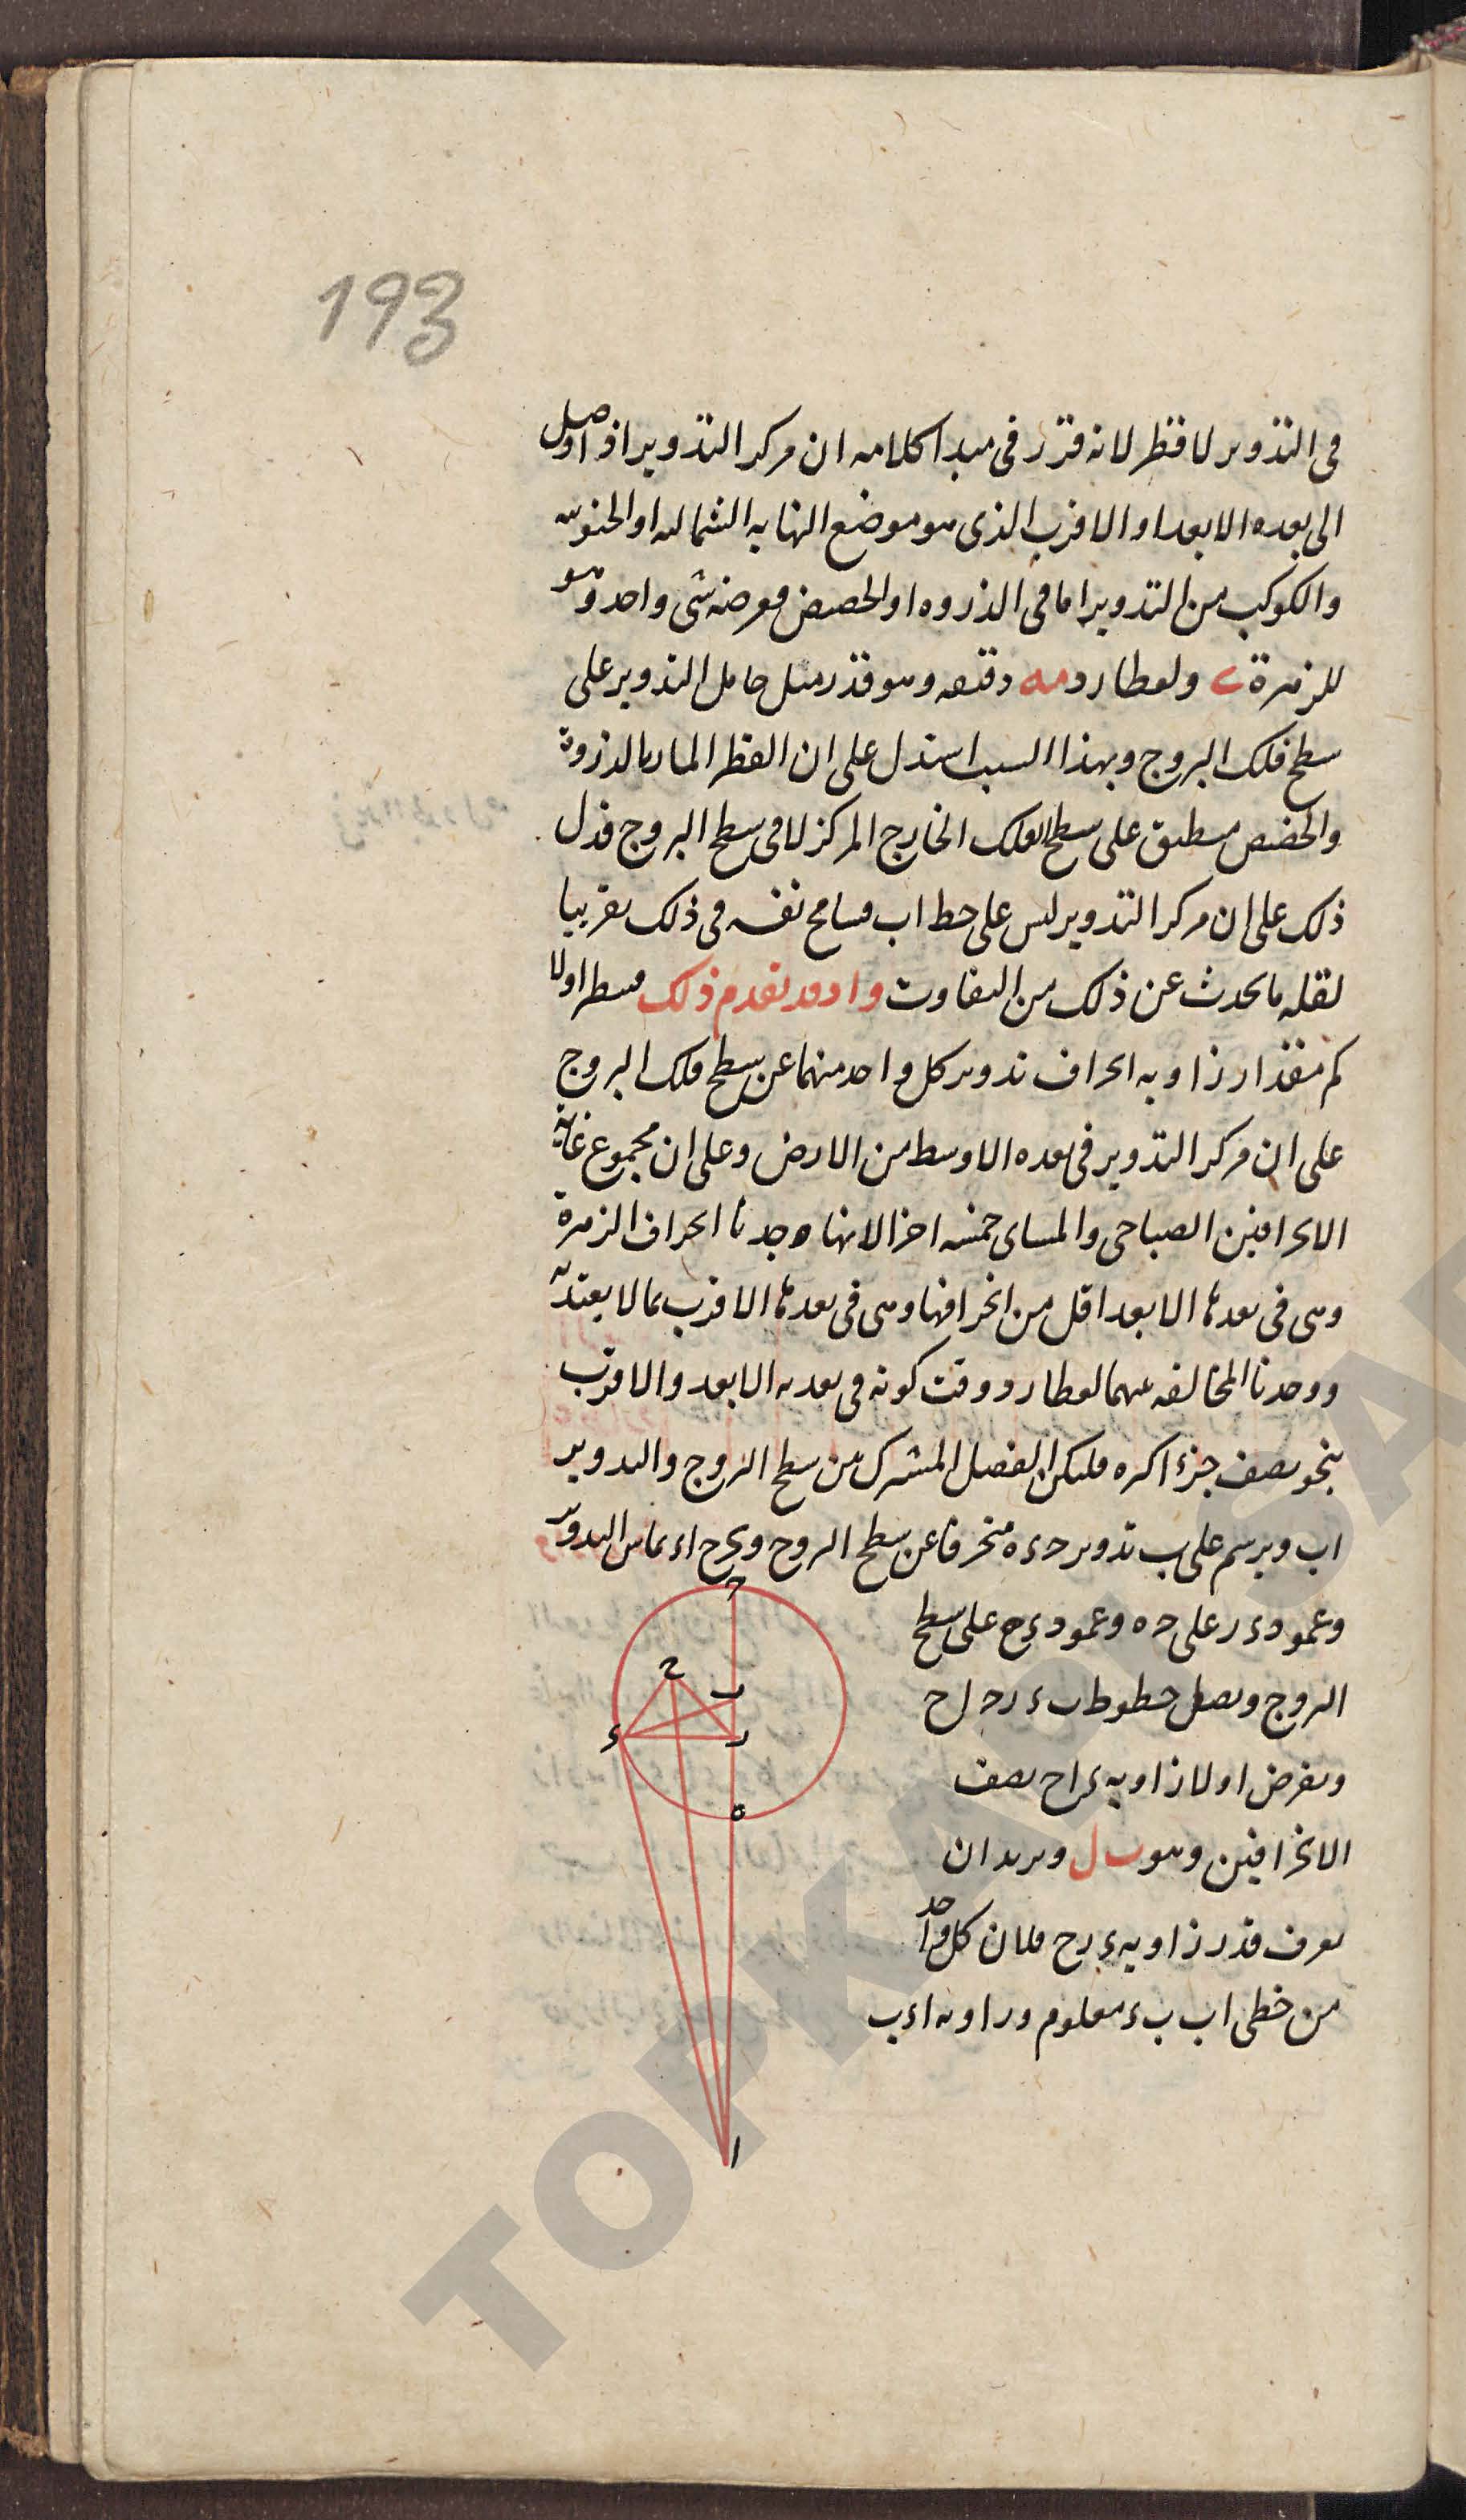 193
في التدوير لا قطر لانه قرر في مبدا كلامه ان مركز التدوير اذا وصل
الى بعده الابعد او الاقرب الذى هو موضع النهايه الشماليه او الجنوبيه
والكوكب من التدوير اما في الذروه او الحضيض فعرضه شى واحد وهو
للزهرة ى ولعطارد مه دقيقه وهو قدر ميل حامل التدوير على
سطح فلك البروج وبهذا السبب استدل على ان القطر المار بالذروة
والحضيض منطبق على سطح الفلك الخارج المركز لا في سطح البروج فدل
ذلك على ان مركز التدوير ليس على خط اب فسامح نفسه في ذلك تقريبا
لقله ما يحدث عن ذلك من التفاوت واذ قد تقدم ذلك فننظر اولا
كم مقدار زاويه انحراف تدوير كل واحد منهما عن سطح فلك البروج
على ان مركز التدوير في بعده الاوسط من الارض وعلى ان مجموع غاية
الانحرافين الصباحى والمساى خمسه اجزا لانها وجدنا انحراف الزهرة
وهى في بعدها الابعد اقل من انحرافها وهى في بعدها الاقرب بما لا يعتد به
ووجدنا المخالفه بينهما لعطارد وقت كونه في بعديه الابعد والاقرب
بنحو نصف جزء اكره فليكن الفصل المشترك بين سطح البروج والتدوير
اب ويرسم على ب تدوير حءه منحرفا عن سطح البروج ويخرج اء يماس التدوير
وعمود ء ر على حه وعمود ء ح على سطح
البروج ونصل خطوط ب ء ر ح ا ح
ونفرض اولا زاويه ء ا ح نصف
الانحرافين وهو ب ل ونريد ان
نعرف قدر زاويه ء ر ح فلان كل واحد
من خطى اب ب ء معلوم وزاويه ا ء ب
ح
ح
ب
ء
ر
ه
ا
TOPKAPI SA